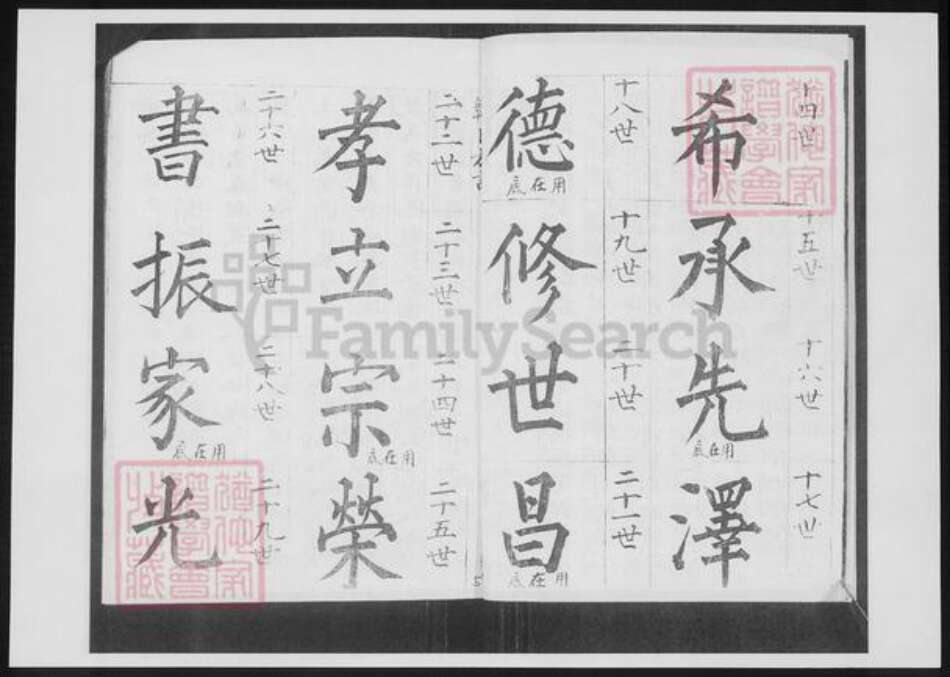 十四世 十五世 十六世 十七世
希承先澤
底在用
十八世 十九世 二十世 二十一世
德修世昌
底在用
底在用
二十二世 二十三世 二十四世 二十五世
孝立宗榮
底在用
二十六世 二十七世 二十八世 二十九世
書振家光
底在用
FamilySearch